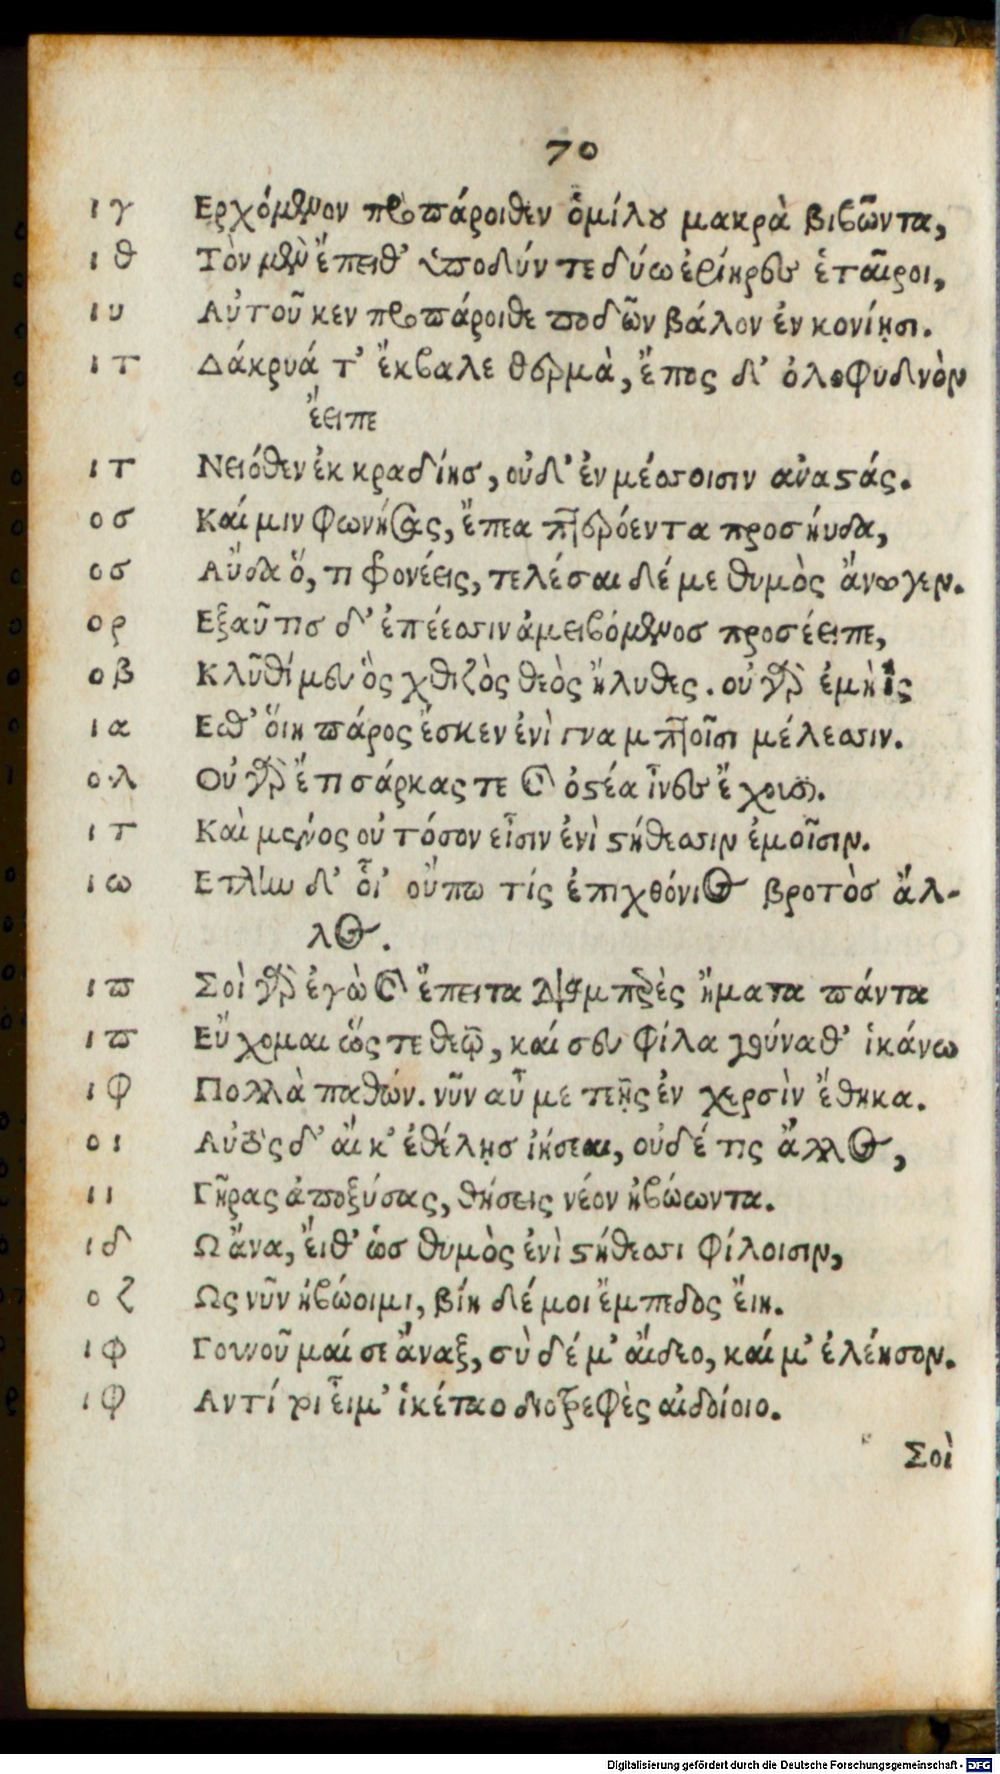 70
ιγ Ερχόμενον προπάροιθεν ὁμίλου μακρὰ βιβῶντα,
ιθ Τὸν μὲν ἔπειθ' ὑποδύν τε δύω ἐρίηρες ἑταῖροι,
ιυ Αὐτοῦ κεν προπάροιθε ποδῶν βάλον ἐν κονίῃσι.
ιτ Δάκρυά τ' ἔκβαλε θερμὰ, ἔπος δ' ὀλοφυδνὸν
ἔειπε
ιτ Νειόθεν ἐκ κραδίησ, οὐδ' ἐν μέσσοισιν ἀναστάς.
οσ Καί μιν φωνήσας, ἔπεα πτερόεντα προσηύδα,
οσ Αὔδα ὅ, τι φρονέεις, τελέσαι δέ με θυμὸς ἄνωγεν.
ορ Εξαῦτισ δ' ἐπέεσσιν ἀμειβόμενοσ προσέειπε,
οβ Κλῦθί μευ ὃς χθιζὸς θεὸς ἤλυθες. οὐ γὰρ ἐμὴ ἲς
ια Εσθ' ὅιη πάρος ἔσκεν ἐνὶ γναμπτοῖσι μέλεσσιν.
ολ Οὐ γὰρ ἔτι σάρκας τε καὶ ὀστέα ἶνες ἔχουσι.
ιτ Καὶ μένος οὐ τόσον εἶσιν ἐνὶ στήθεσσιν ἐμοῖσιν.
ιω Ετλην δ' οἷ' οὔπω τίς ἐπιχθόνιος βροτὸσ ἄλ-
λος.
ιπ Σοὶ γὰρ ἐγὼ καὶ ἔπειτα διαμπερὲς ἤματα πάντα
ιπ Εὔχομαι ὥς τε θεῷ, καί σευ φίλα γούναθ' ἱκάνω
ιφ Πολλὰ παθών. νῦν αὖ με τεῇς ἐν χερσὶν ἔθηκα.
οι Αὐτὸς δ' ἄι κ' ἐθέλῃσ ἰήσεαι, οὐδέ τις ἄλλος,
ιι Γῆρας ἀποξύσας, θήσεις νέον ἡβώωντα.
ιδ Ω ἄνα, ἔιθ' ὡσ θυμὸς ἐνὶ στήθεσσι φίλοισιν,
οζ Ως νῦν ἡβώοιμι, βίη δέ μοι ἔμπεδος ἔιη.
ιφ Γουνοῦμαί σε ἄναξ, σὺ δέ μ' ἄιδεο, καί μ' ἐλέησον.
ιφ Αντί τοι εἶιμ' ἱκέταο διοτρεφὲς αἰδοίοιο.
Σοὶ
Digitalisierung gefördert durch die Deutsche Forschungsgemeinschaft - DFG